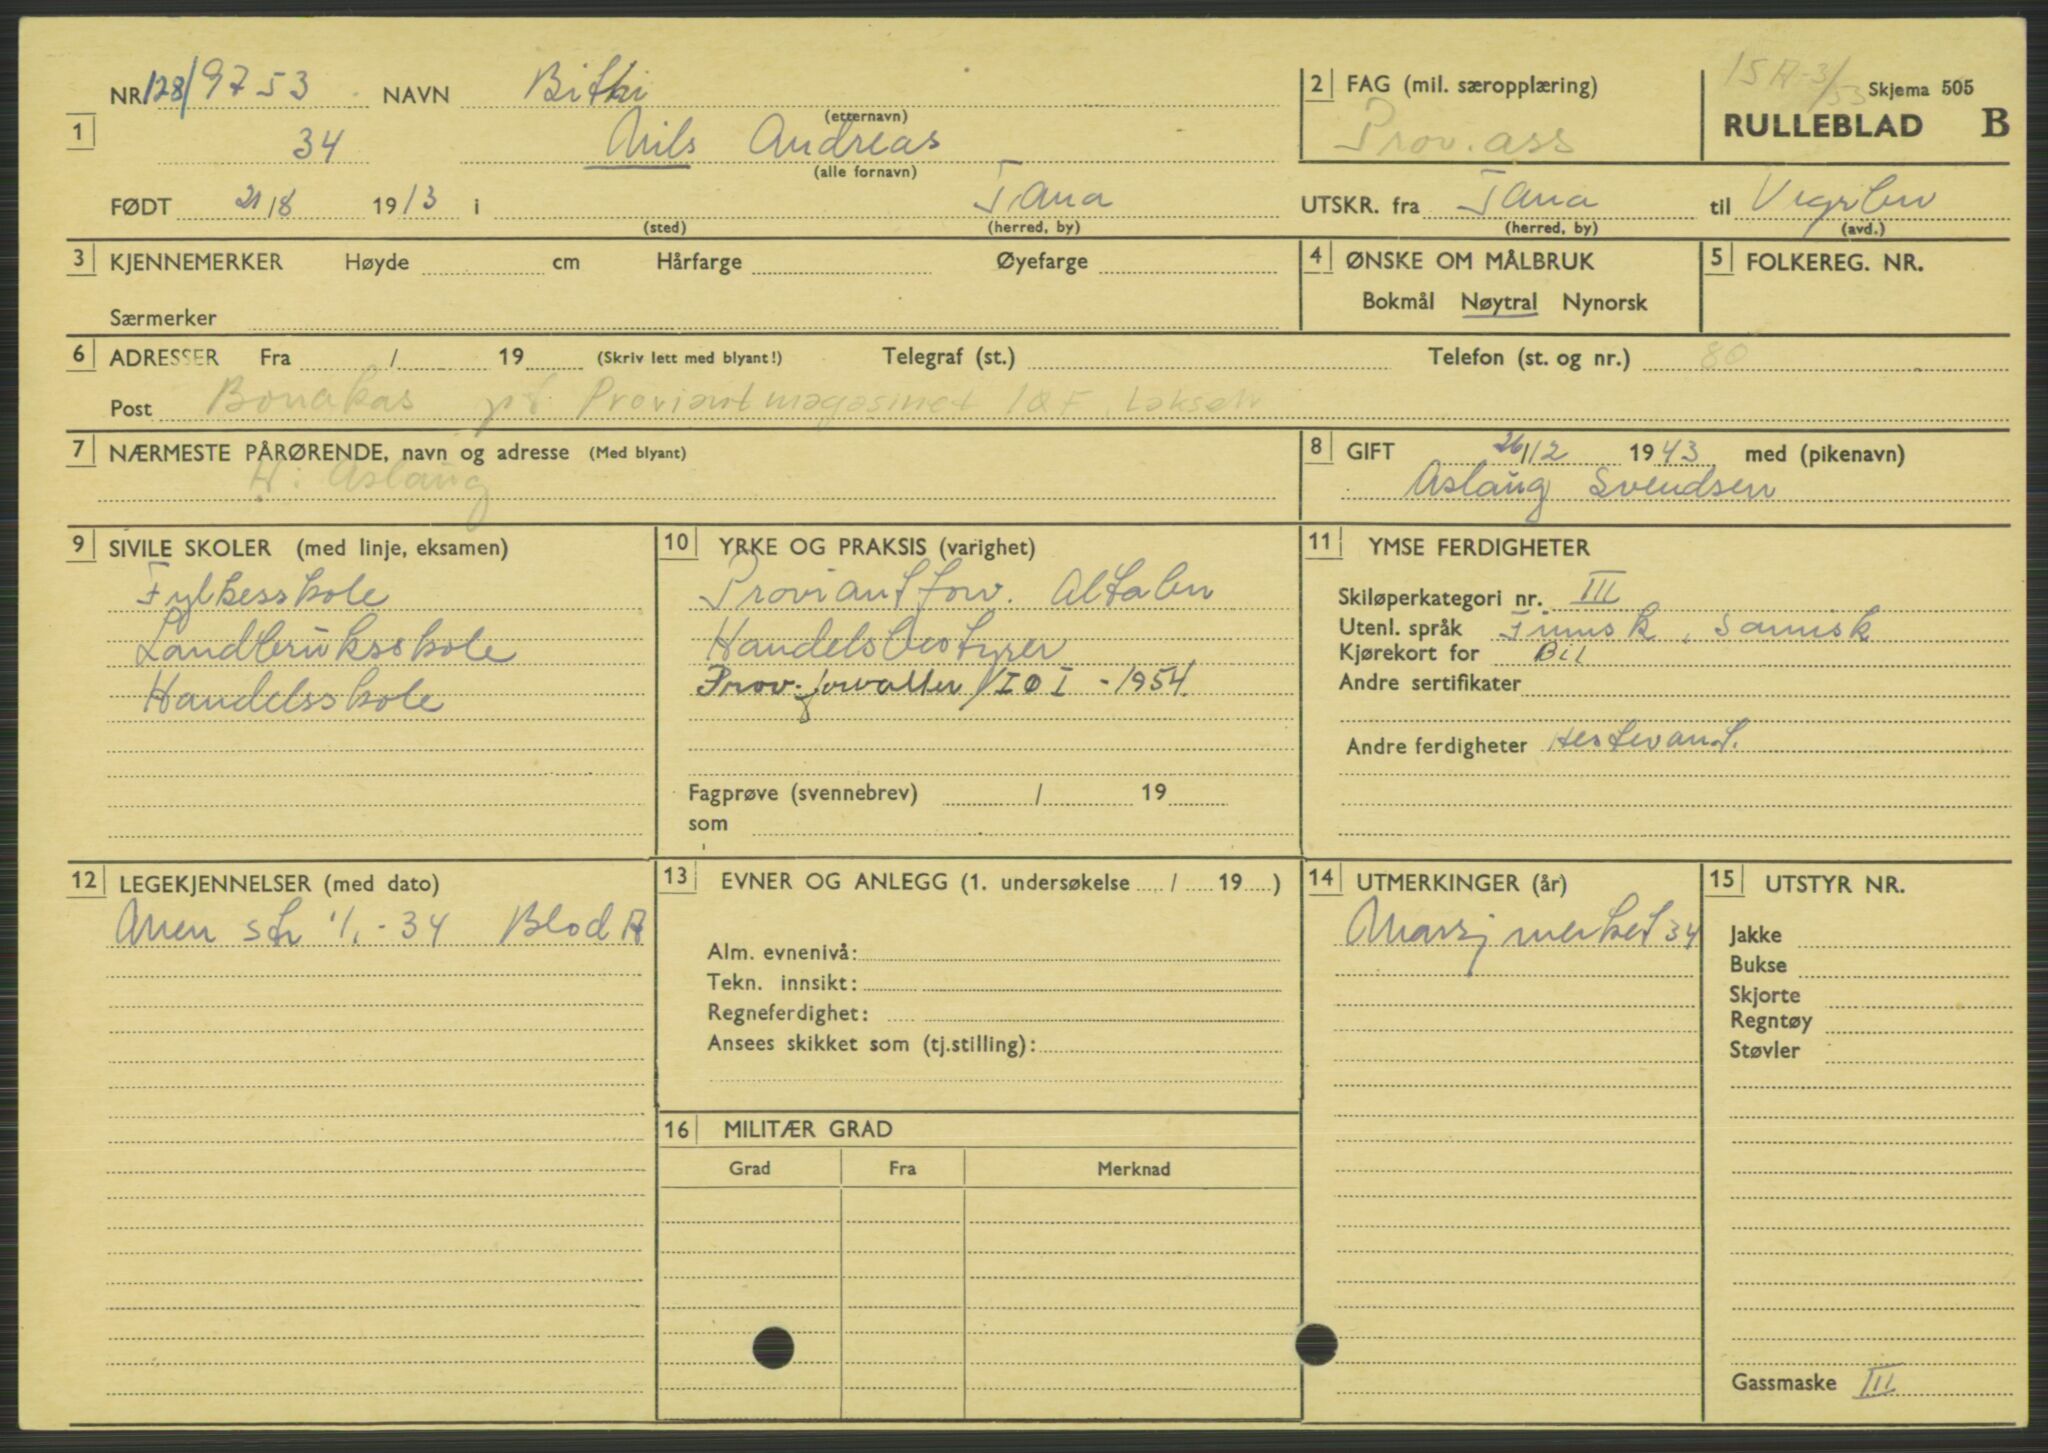 NR 128/9753 NAVN Bitti
(etternavn)
1 34 Nils Andreas
(alle fornavn)
FØDT 21/8 1913 i Tana
(sted) (herred, by)
2 FAG (mil. særopplæring)
Prov. ass
15 A-3/53 Skjema 505
RULLEBLAD B
UTSKR. fra Tana til
(herred, by) (avd.)
3 KJENNEMERKER Høyde cm Hårfarge Øyefarge
Særmerker
4 ØNSKE OM MÅLBRUK
Bokmål Nøytral Nynorsk
5 FOLKEREG. NR.
6 ADRESSER Fra / 19 (Skriv lett med blyant!) Telegraf (st.) Telefon (st. og nr.) 80
Post Bonakas pt Proviantmagasinet IØF, Lakselv
7 NÆRMESTE PÅRØRENDE, navn og adresse (Med blyant)
H: Aslaug
8 GIFT 26/12 1943 med (pikenavn)
Aslaug Svendsen
9 SIVILE SKOLER (med linje, eksamen)
Fylkesskole
Landbruksskole
Handelsskole
10 YRKE OG PRAKSIS (varighet)
Proviantforv. Altabn
Handelsbestyrer
Prov.forvalter IØI - 1954.
Fagprøve (svennebrev) / 19
som
11 YMSE FERDIGHETER
Skiløperkategori nr. III
Utenl. språk Finnsk, Samisk
Kjørekort for Bil
Andre sertifikater
Andre ferdigheter Hestevant.
12 LEGEKJENNELSER (med dato)
str 1/1 - 34 Blod A
13 EVNER OG ANLEGG (1. undersøkelse / 19 )
Alm. evnenivå:
Tekn. innsikt:
Regneferdighet:
Ansees skikket som (tj.stilling):
14 UTMERKINGER (år)
Marsjmerket 34
15 UTSTYR NR.
Jakke
Bukse
Skjorte
Regntøy
Støvler
Gassmaske III
16 MILITÆR GRAD
Grad Fra Merknad